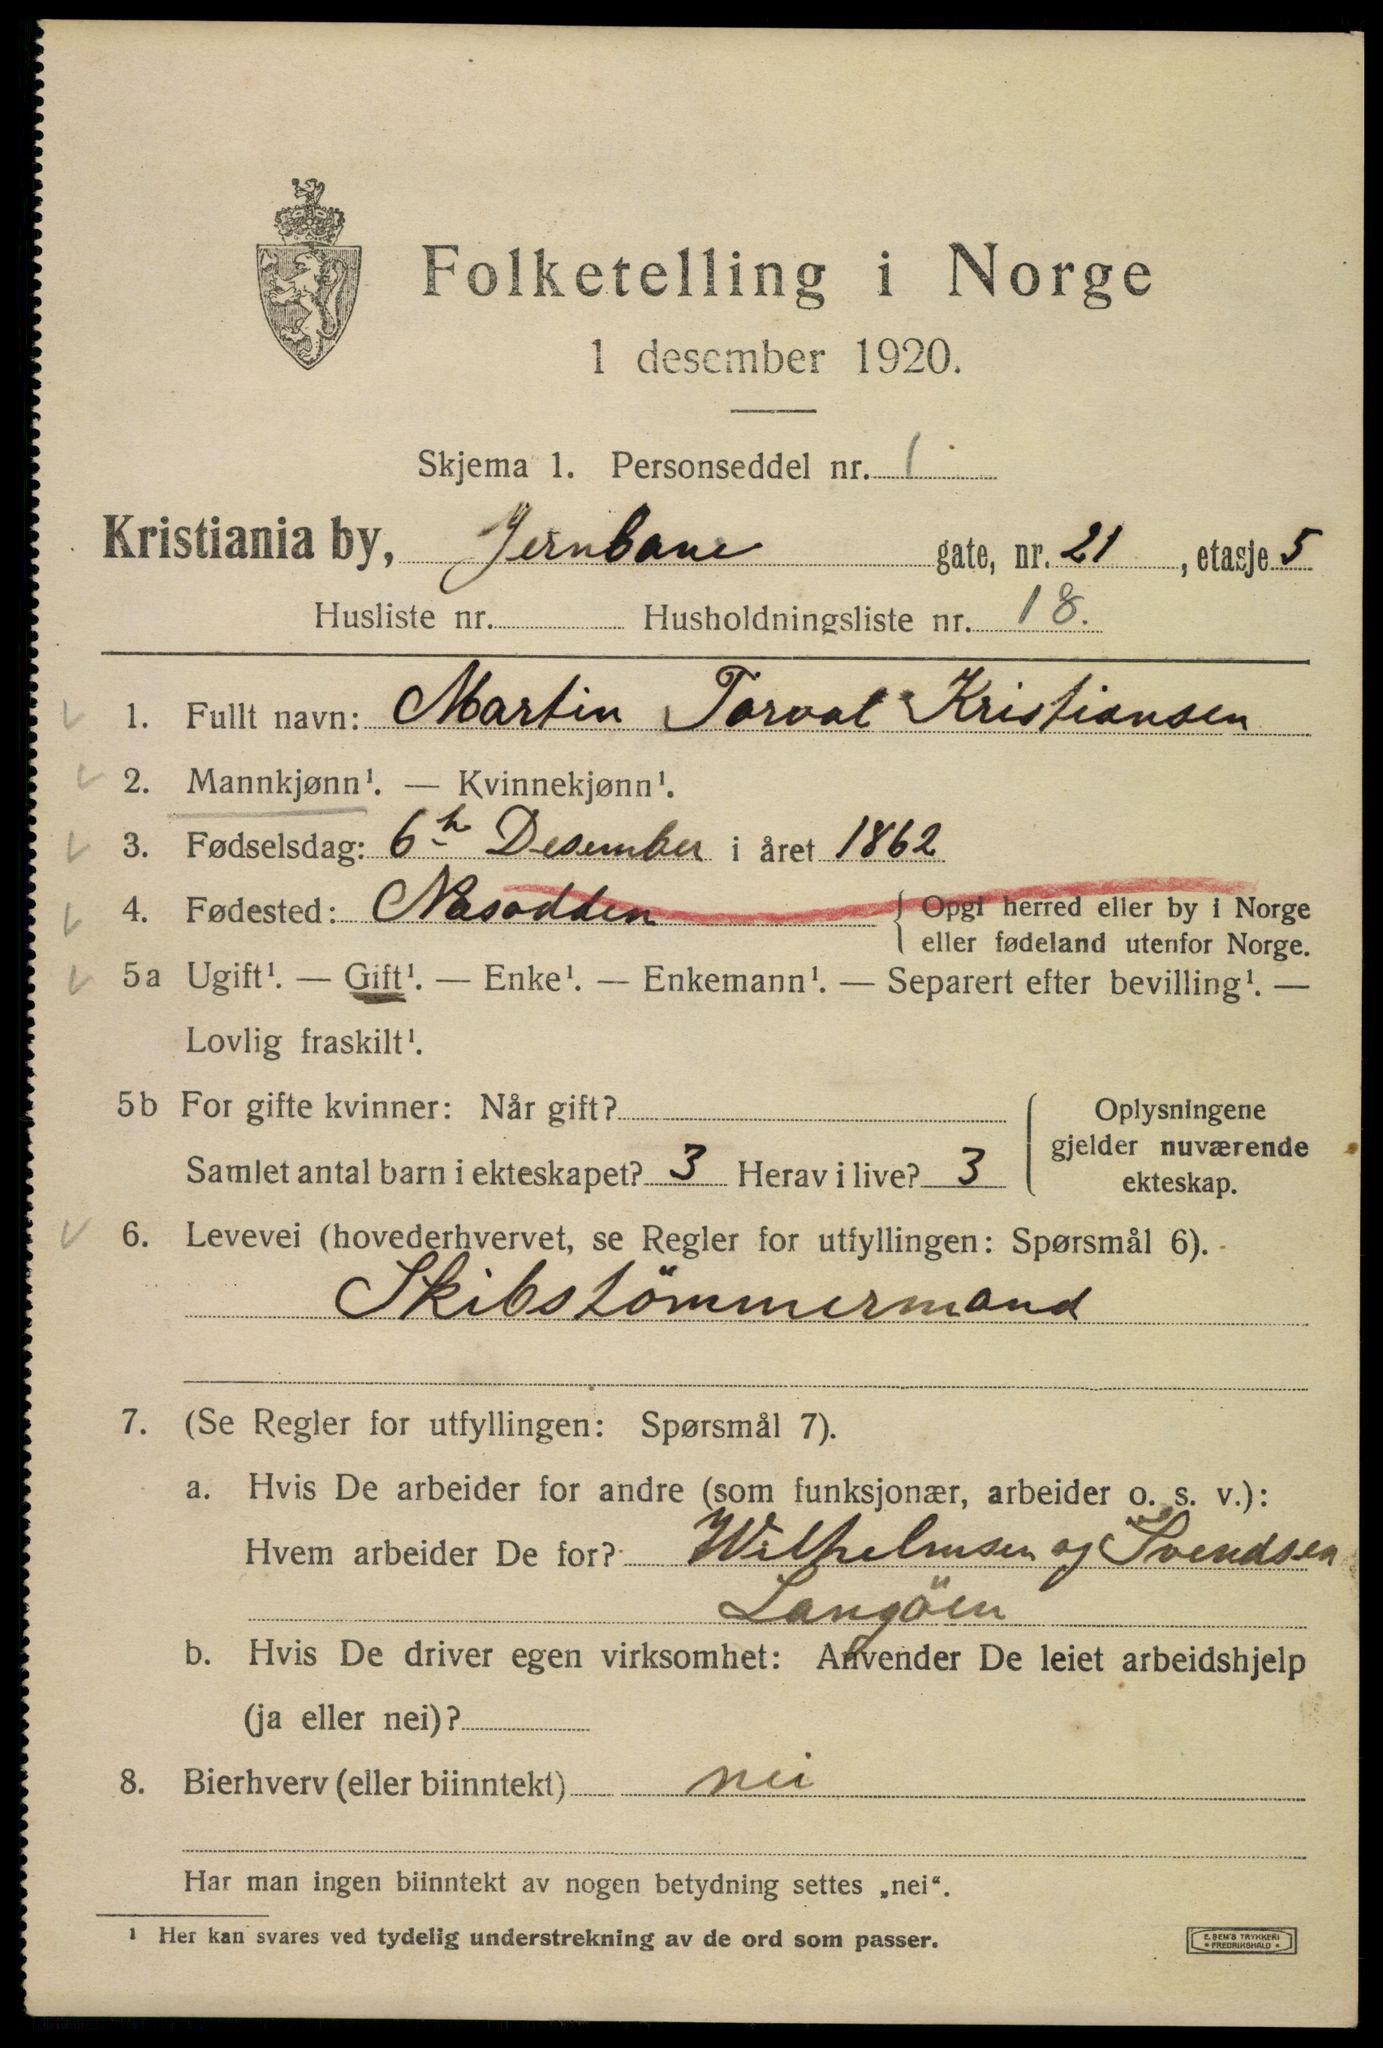 Folketelling i Norge
1 desember 1920.
Skjema 1. Personseddel nr. 1
Kristiania by, Jernbane gate, nr. 21, etasje 5
Husliste nr. Husholdningsliste nr. 18.
1. Fullt navn: Martin Torval Kristiansen
2. Mannkjønn¹. — Kvinnekjønn¹.
3. Fødselsdag: 6h Desember i året 1862
4. Fødested: Nesodden { Opgi herred eller by i Norge
eller fødeland utenfor Norge.
5a Ugift¹. — Gift¹. — Enke¹. — Enkemann¹. — Separert efter bevilling¹. —
Lovlig fraskilt¹.
5b For gifte kvinner: Når gift?
Samlet antal barn i ekteskapet? 3 Herav i live? 3
Oplysningene
gjelder nuværende
ekteskap.
6. Levevei (hovederhvervet, se Regler for utfyllingen: Spørsmål 6).
Skibstömmermand
7. (Se Regler for utfyllingen: Spørsmål 7).
a. Hvis De arbeider for andre (som funksjonær, arbeider o. s. v.):
Hvem arbeider De for? Wilhelmsen og Svendsen
Langöen
b. Hvis De driver egen virksomhet: Anvender De leiet arbeidshjelp
(ja eller nei)?
8. Bierhverv (eller biinntekt) nei
Har man ingen biinntekt av nogen betydning settes „nei“.
¹ Her kan svares ved tydelig understrekning av de ord som passer.
E. SEM'S TRYKKERI
• FREDRIKSHALD •